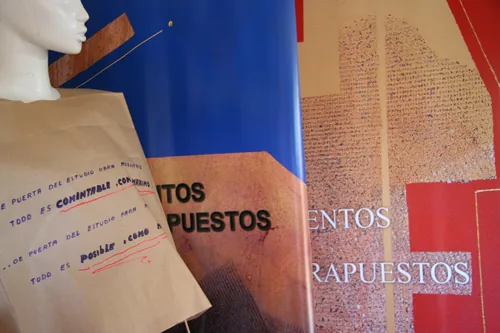 DE PUERTA DEL ESTUDIO PARA
TODO ES COMENTABLE,
...DE PUERTA DEL ESTUDIO PARA
TODO ES POSIBLE, COMO
NTOS
PUESTOS
ENTOS
RAPUESTOS